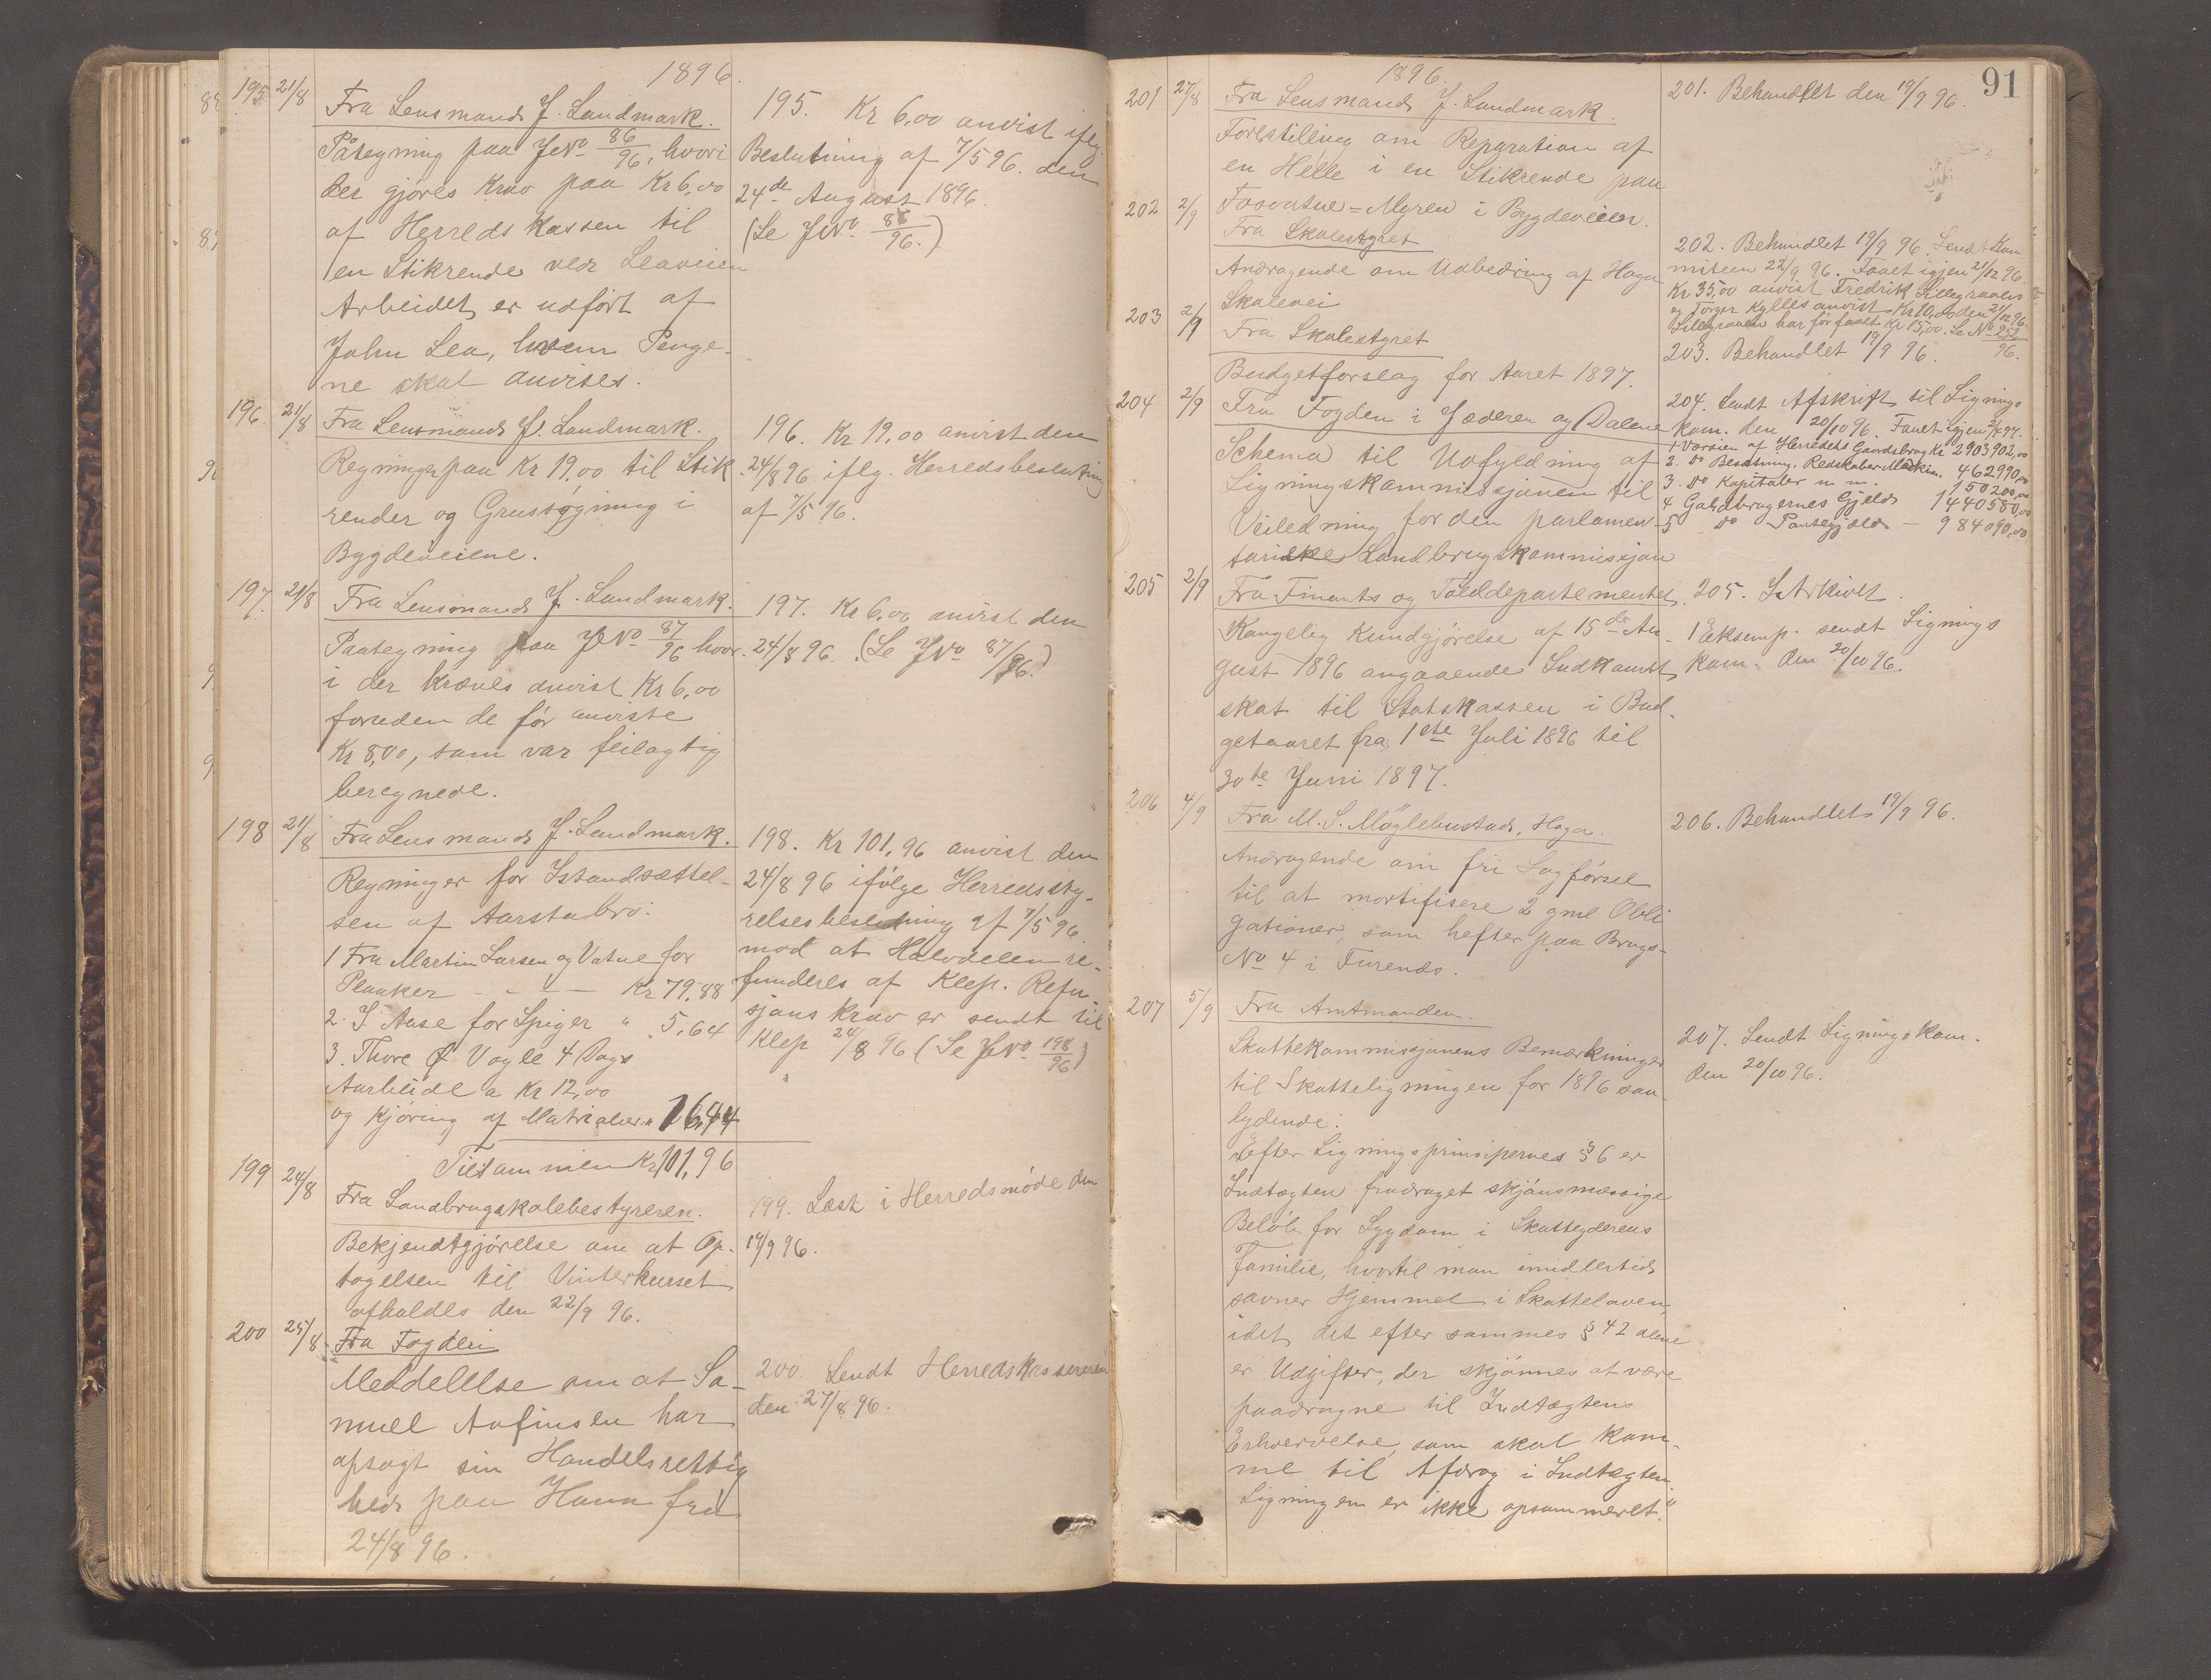 1896.
195 21/8 Fra Lensmand J. Landmark.
Påtegning paa JNo 86/96, hvori
der gjøres Krav paa Kr 6,00
af Herredskassen til
en Stikrende ved Leaveien
Arbeidet er udført af
John Lea, hvem Penge-
ne skal anvises.
195. Kr 6,00 anvist iflg.
Beslutning af 7/5 96. den
24de August 1896.
(Se JNo 86/96.)
196. 21/8 Fra Lensmand J. Landmark.
Regninger paa Kr 19,00 til Stik
render og Grussøgning i
Bygdeveiene.
196. Kr 19,00 anvist den
24/8 96 iflg. Herredsbeslutning
af 7/5 96.
197. 21/8 Fra Lensmand J. Landmark.
Paategning paa JNo 87/96 hvor-
i der kræves anvist Kr 6,00
foruden de før anviste
Kr 8,00, som var feilagtig
beregnede.
197. Kr 6,00 anvist den
24/8 96. (Se JNo 87/96.)
198 21/8 Fra Lensmand J. Landmark.
Regninger for Istandsættel-
sen af Aarstabro:
1 Fra Martin Larsen og Vatne for
Planker - - - Kr 79,88
2. S. Aase for Spiger " 5,64
3. Thore Ø Vagle 4 Dags
Aarbeide a Kr 12,00
og Kjøring af Matrialier " 16,44
Tilsammen Kr 101,96
198. Kr 101,96 anvist den
24/8 96 ifølge Herredssty-
relsesbeslutning af 7/5 96
mod at Halvdelen re-
funderes af Klep. Refu-
sjons krav er sendt til
Klep 24/8 96 (Se JNo 198/96)
199 24/8 Fra Landbrugskolebestyreren.
Bekjendtgjørelse om at Op-
tagelsen til Vinterkurset
afholdes den 22/9 96.
199. Læst i Herredsmøde den
19/9 96.
200 25/8 Fra Fogden
Meddelelse om at Sa-
muel Aafinsen har
opsagt sin Handelsrettig
hed paa Hann fra
24/8 96.
200. Sendt Herredskassereren
den 27/8 96.
91
1896.
201 27/8 Fra Lensmand J. Landmark.
Forestilling om Reparation af
en Helle i en Stikrende paa
Fosvatne-Myren i Bygdeveien.
201. Behandlet den 19/9 96.
202 2/9 Fra Skolestyret
Andragende om Udbedring af Haga
Skolevei
202. Behandlet 19/9 96. Sendt Kom
miteen 22/9 96. Faaet igjen 21/12 96
Kr 35,00 anvist Fredrik Lillegraven
og Torger Kylles anvist Kr 10,00 den 21/12 96.
Lillegraven har før faaet Kr 15,00. Se No
203 2/9 Fra Skolestyret
Budgetforslag for Aaret 1897.
203. Behandlet 19/9 96.
204 2/9 Fra Fogden i Jæderen og Dalene
Schema til Udfyldning af
Ligningskommissjonen til
Veiledning for den parlamen-
tariske Landbrugskommissjon
204. Sendt Afskrift til Lignings
kom. den 20/10 96. Faaet igjen 2/4 97.
1 Værdien af Herredets Gaardsbrug Kr 2903902,00
2. Do Besætning, Redskaber Maskin. 462990,00
3. Do Kapitaler m m. 150200,00
4 Gaardbrugernes Gjeld 1440580,00
5 Do Pantegjæld - 984090,00
205 2/9 Fra Finants og Tolddepartementet.
Kongelig Kundgjørelse af 15de Au-
gust 1896 angaaende Indkomst
skat til Statskassen i Bud-
getaaret fra 1ste Juli 1896 til
30te Juni 1897.
205. I Arkivet.
1 Eksemp. sendt Lignings
kom. den 20/10 96.
206 4/9 Fra M. S. Møglebustad, Haga.
Andragende om fri Sagførsel
til at mortifisere 2 gml Obli
gationer, som hefter paa Brugs-
No 4 i Turends.
206. Behandlet 19/9 96.
207 5/9 Fra Amtmanden.
Skattekommissjonens Bemærkninger
til Skatteligningen for 1896 saa-
lydende:
"Efter Ligningsprinsipernes § 6 er
Indtægten fradraget skjønsmæssige
Beløb for Sygdom i Skatteyderens
Familie, hvortil man imidlertid
savner Hjemmel i Skatteloven,
idet det efter sammes § 42 alene
er Udgifter, der skjønnes at være
paadragne til Indtægtens
Erhvervelse, som skal kom-
me til Afdrag i Indtægten
Ligningen er ikke opsummeret."
207. Sendt Ligningskom.
den 20/10 96.